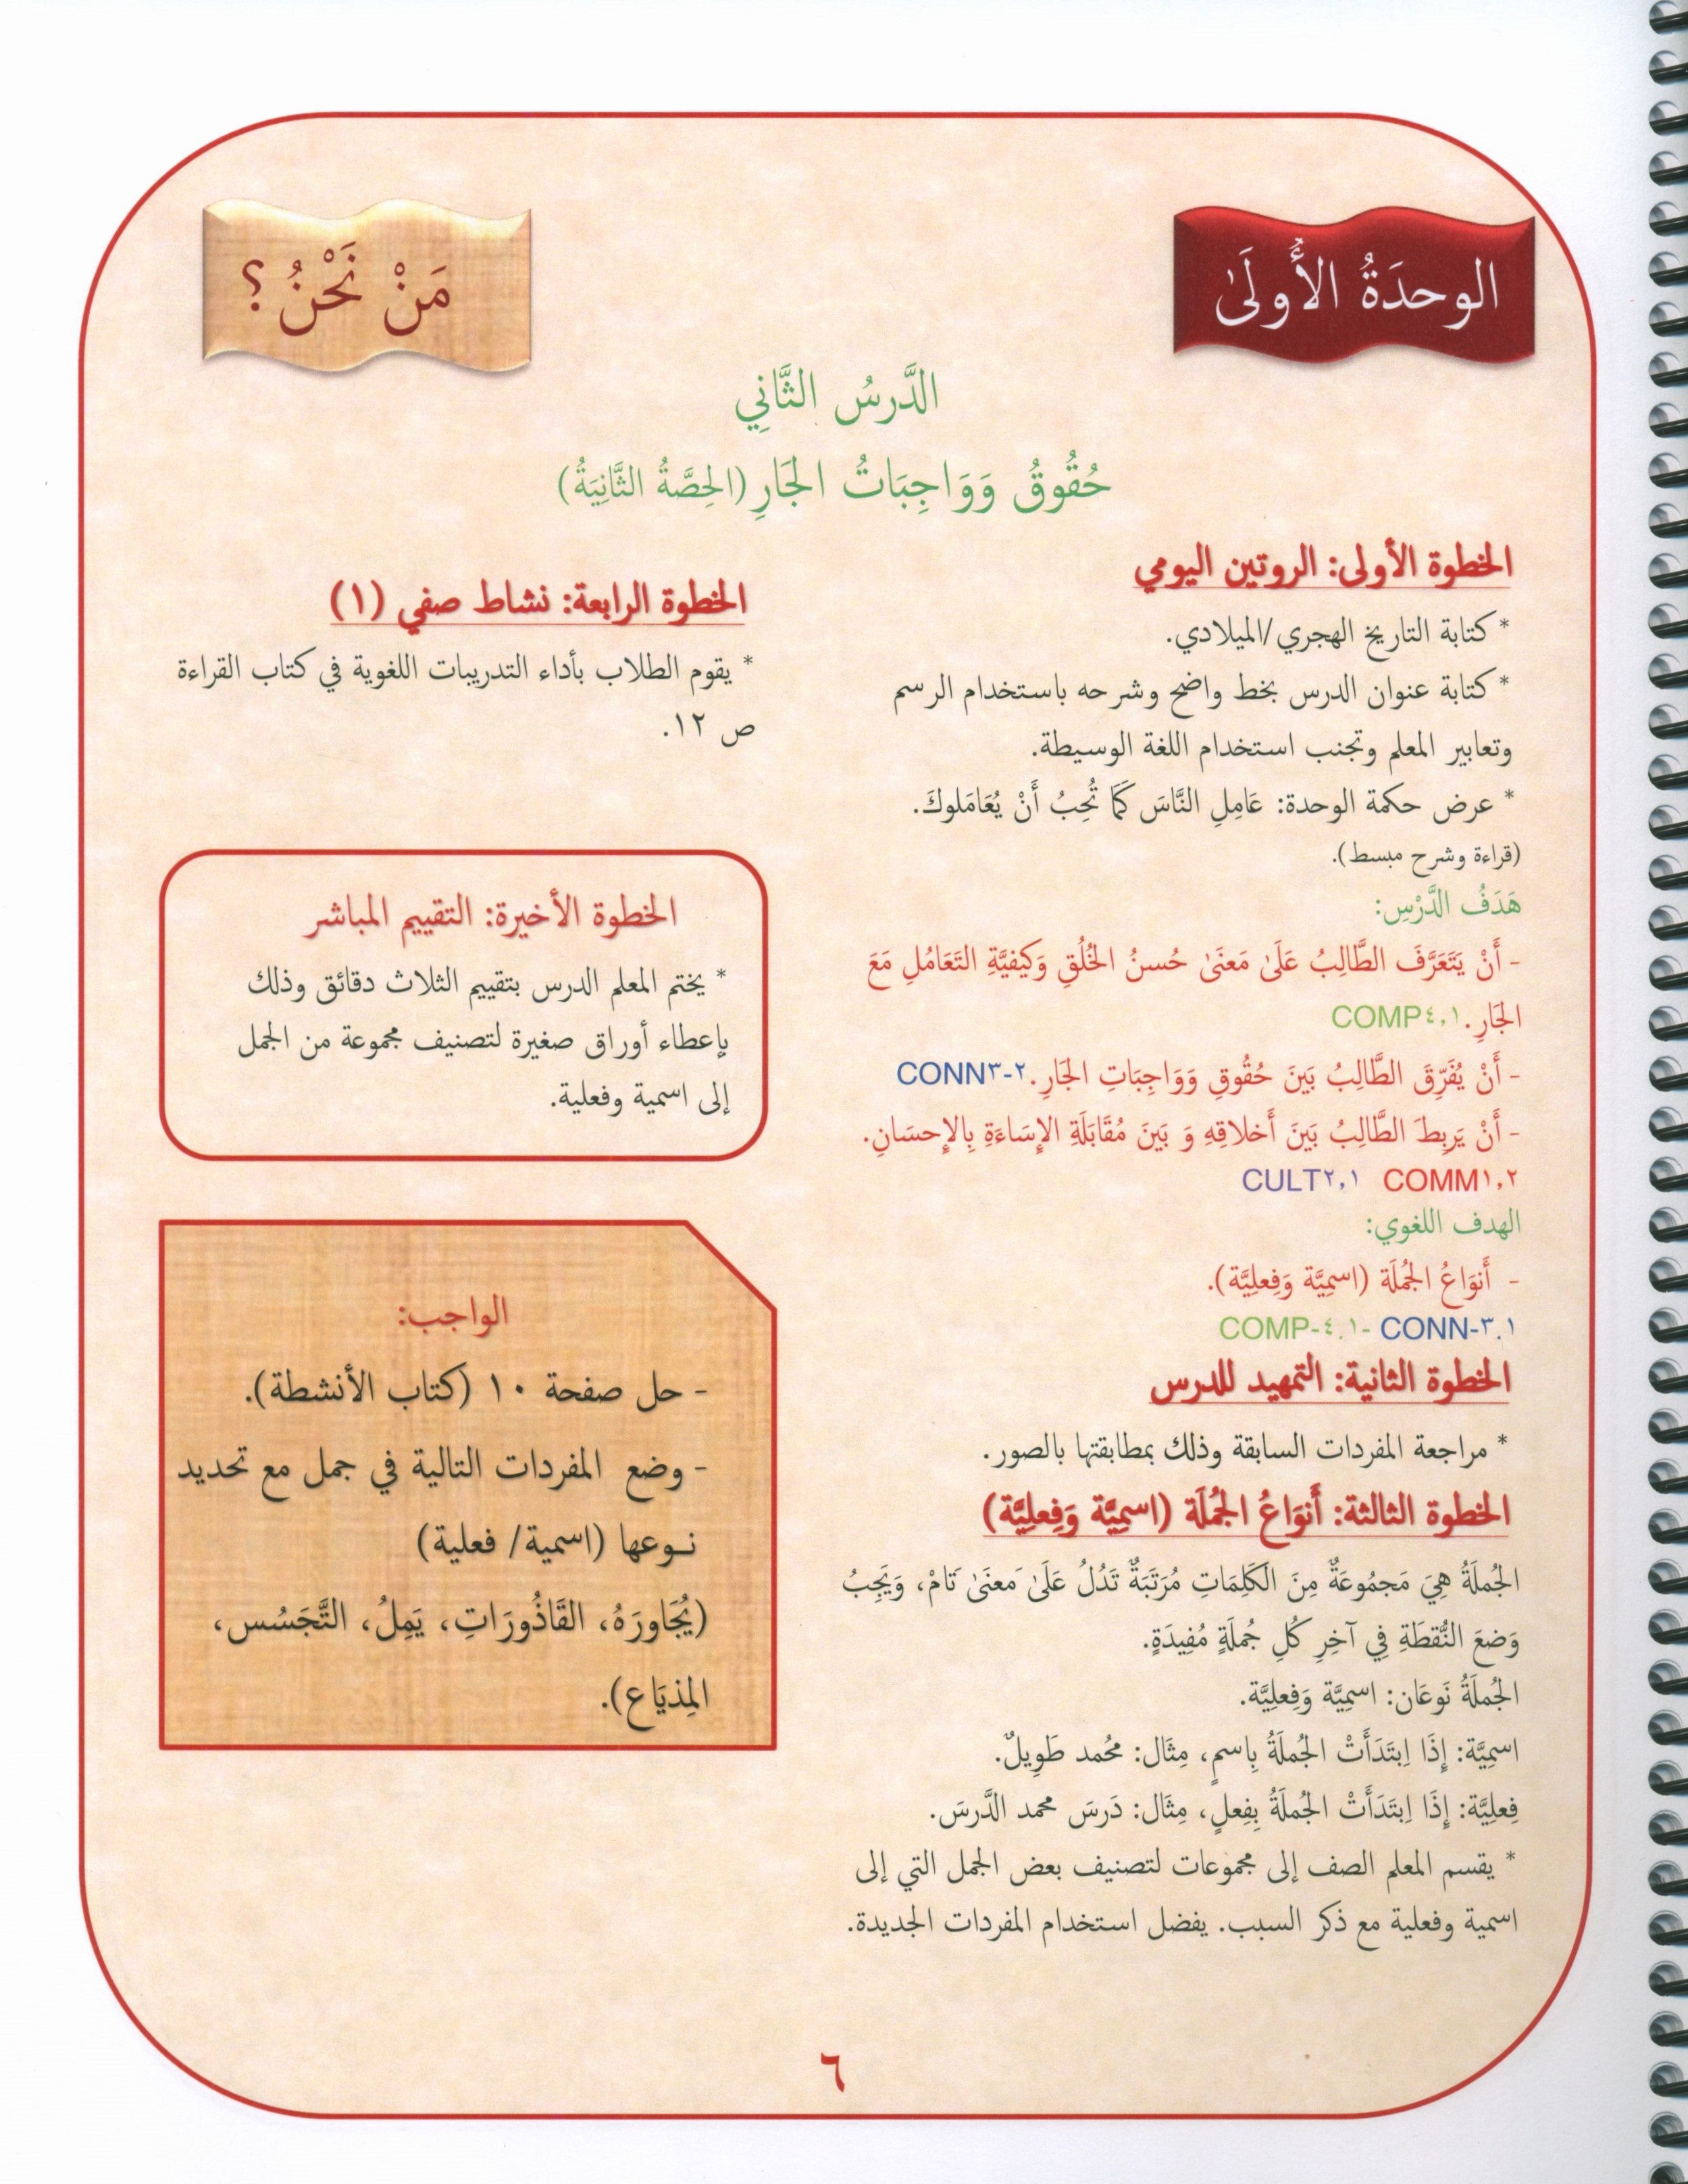 الوحدَةُ الأُولَىٰ
مَنْ نَحْنُ؟
الدَّرسُ الثَّانِي
حُقُوقُ وَوَاجِبَاتُ الجَارِ (الحِصَّةُ الثَّانِيَةُ)
الخطوة الأولى: الروتين اليومي
* كتابة التاريخ الهجري/الميلادي.
* كتابة عنوان الدرس بخط واضح وشرحه باستخدام الرسم
وتعابير المعلم وتجنب استخدام اللغة الوسيطة.
* عرض حكمة الوحدة: عَامِلِ النَّاسَ كَمَا تُحِبُ أَنْ يُعَامَلوكَ.
(قراءة وشرح مبسط).
هَدَفُ الدَّرْسِ:
- أَنْ يَتَعَرَّفَ الطَّالِبُ عَلَىٰ مَعنَىٰ حُسنُ الخُلُقِ وَكَيفيَّةِ التَعَامُلِ مَعَ
الجَارِ. COMP٤,١
- أَنْ يُفَرِّقَ الطَّالِبُ بَينَ حُقُوقِ وَوَاجِبَاتِ الجَارِ. CONN٣-٢
- أَنْ يَربِطَ الطَّالِبُ بَينَ أَخلاقِهِ وَ بَينَ مُقَابَلَةِ الإِسَاءَةِ بِالإِحسَانِ.
COMM١,٢ CULT٢,١
الهدف اللغوي:
- أَنوَاعُ الجُملَة (اسمِيَّة وَفِعلِيَّة).
COMP-٤.١- CONN-٣.١
الخطوة الثانية: التمهيد للدرس
* مراجعة المفردات السابقة وذلك بمطابقتها بالصور.
الخطوة الثالثة: أَنوَاعُ الجُملَة (اسمِيَّة وَفِعلِيَّة)
الجُملَةُ هِيَ مَجمُوعَةٌ مِنَ الكَلِمَاتِ مُرَتَبَةٌ تَدُلُ عَلَىٰ مَعنَىٰ تَامْ، وَيَجِبُ
وَضعَ النُّقطَةِ فِي آخِرِ كُلِ جُملَةٍ مُفِيدَةٍ.
الجُملَةُ نَوعَان: اسمِيَّة وَفِعلِيَّة.
اسمِيَّة: إِذَا اِبتَدَأَتْ الجُملَةُ بِاسمٍ، مِثَال: مُحُمد طَوِيلٌ.
فِعلِيَّة: إِذَا اِبتَدَأَتْ الجُملَةُ بِفِعلٍ، مِثَال: دَرسَ محمد الدَّرسَ.
* يقسم المعلم الصف إلى مجموعات لتصنيف بعض الجمل التي إلى
اسمية وفعلية مع ذكر السبب. يفضل استخدام المفردات الجديدة.
الخطوة الرابعة: نشاط صفي (١)
* يقوم الطلاب بأداء التدريبات اللغوية في كتاب القراءة
ص ١٢.
الخطوة الأخيرة: التقييم المباشر
* يختم المعلم الدرس بتقييم الثلاث دقائق وذلك
بإعطاء أوراق صغيرة لتصنيف مجموعة من الجمل
إلى اسمية وفعلية.
الواجب:
- حل صفحة ١٠ (كتاب الأنشطة).
- وضع المفردات التالية في جمل مع تحديد
نـوعها (اسمية/ فعلية)
(يُجَاورَهُ، القَاذُورَاتِ، يَمِلُ، التَّجَسُس،
المِذيَاع).
٦